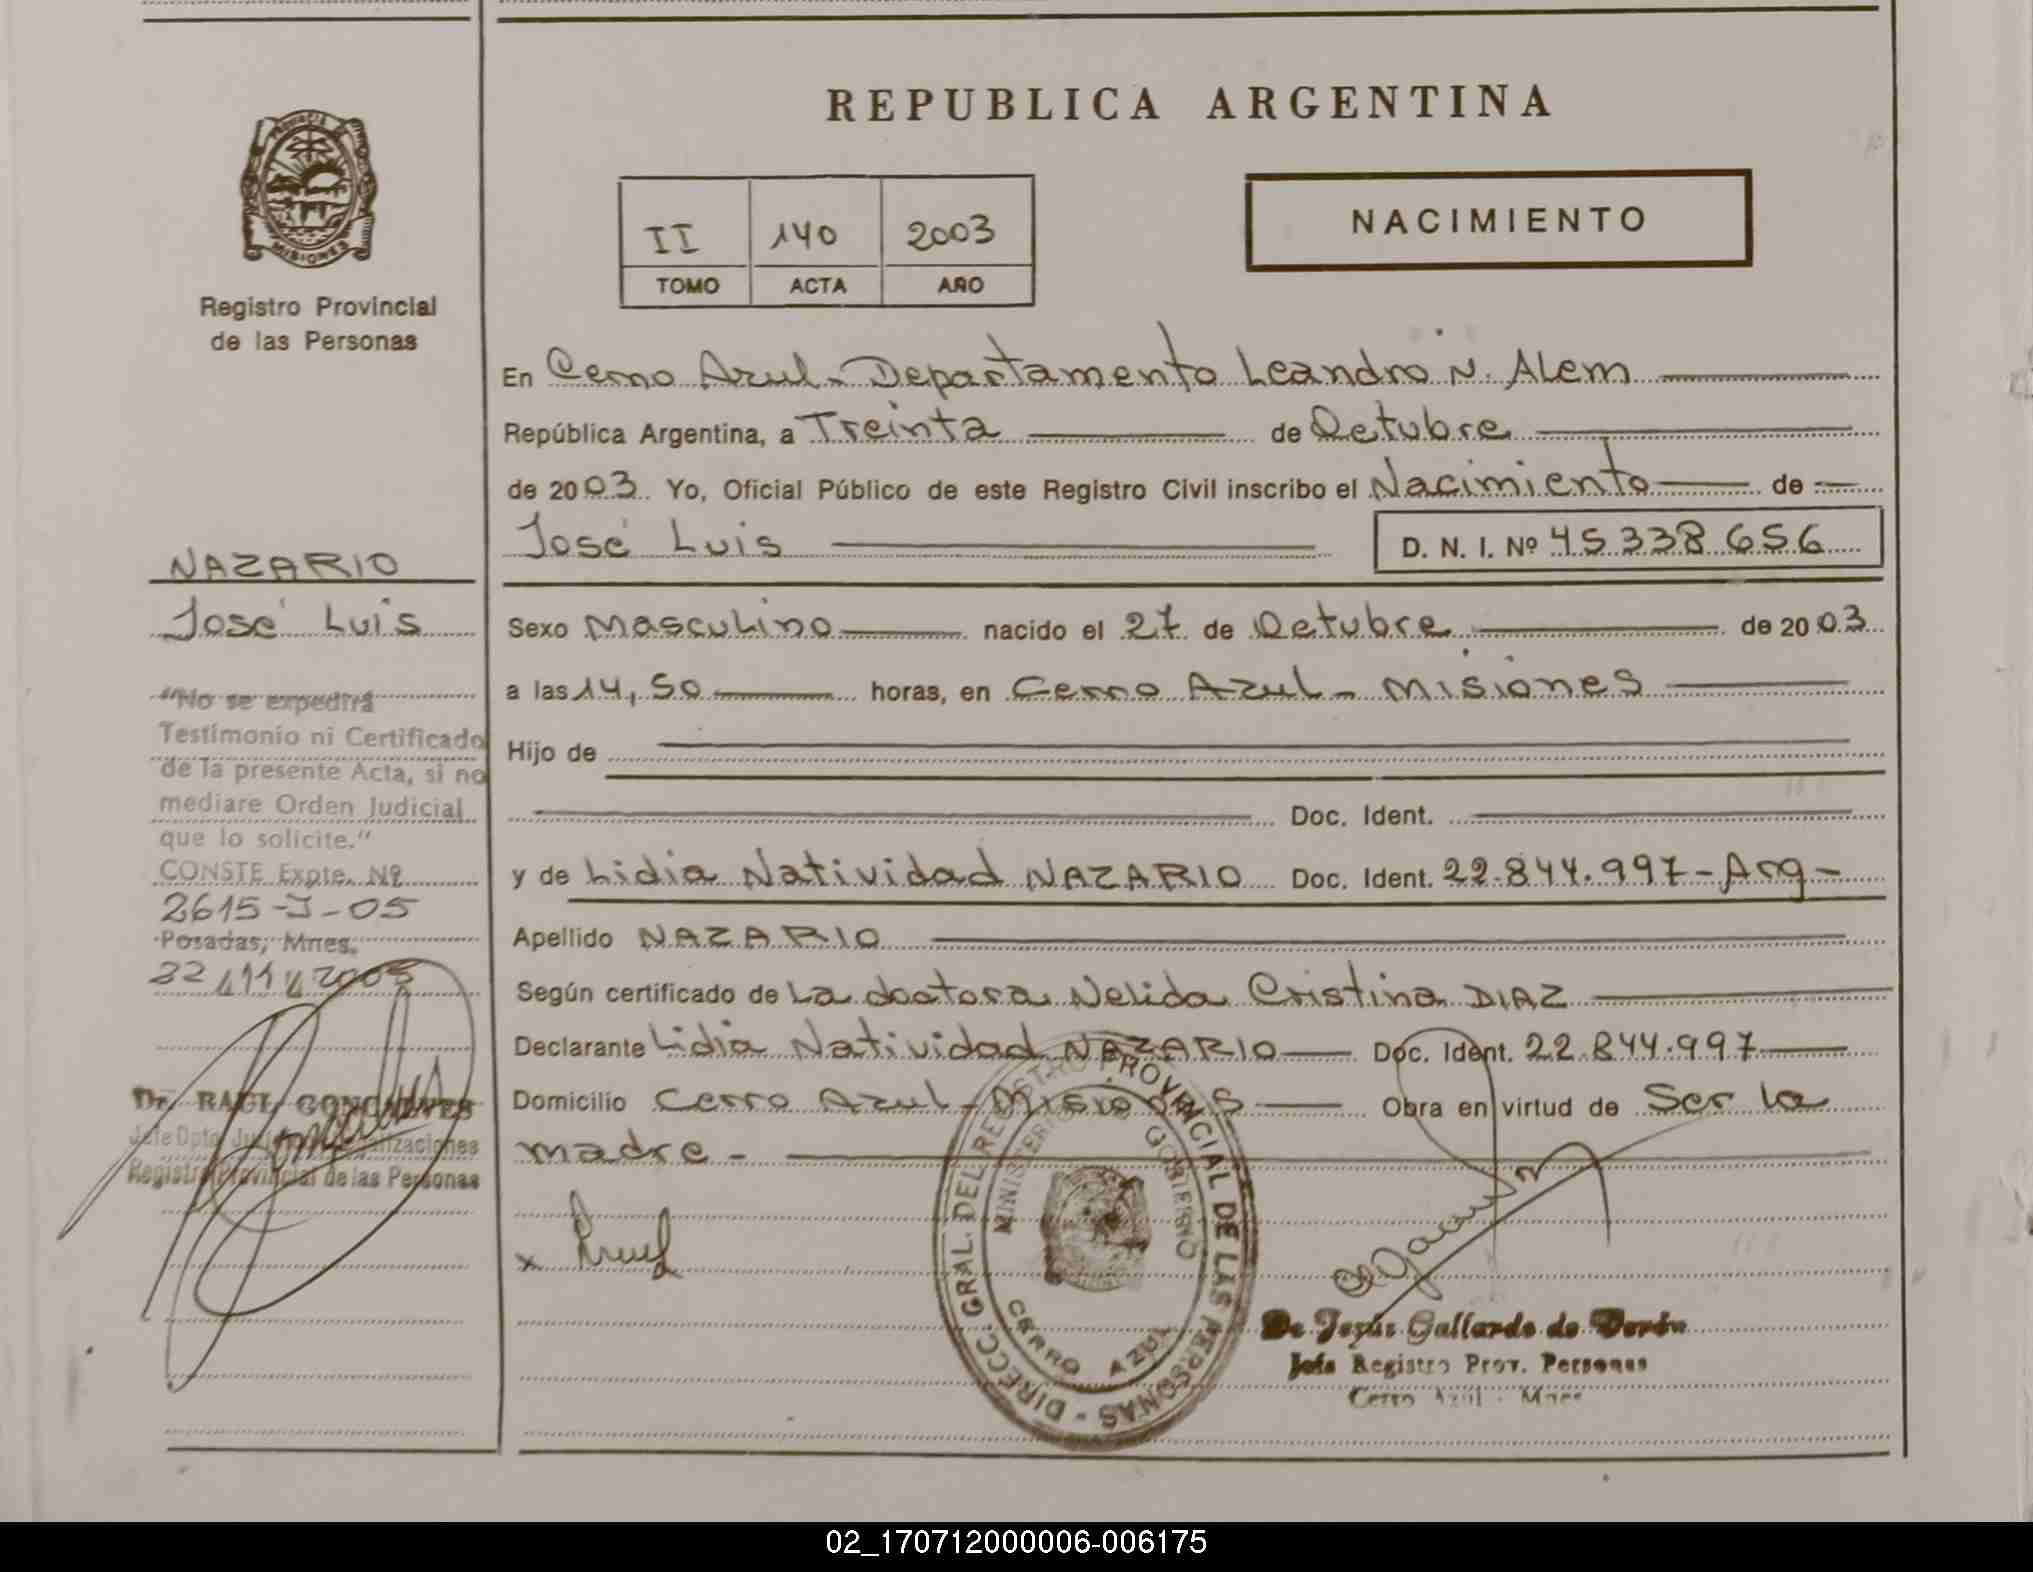 REPUBLICA ARGENTINA
PROVINCIA DE
MISIONES
Registro Provincial
de las Personas
II 140 2003
TOMO ACTA AÑO
NACIMIENTO
En Cerro Azul - Departamento Leandro N. Alem
República Argentina, a Treinta de Octubre
de 2003. Yo, Oficial Público de este Registro Civil inscribo el Nacimiento de
José Luis
D. N. I. Nº 45338656
NAZARIO
José Luis
"No se expedirá
Testimonio ni Certificado
de la presente Acta, si no
mediare Orden Judicial
que lo solicite."
CONSTE Expte. Nº
2615-J-05
Posadas, Mnes.
22/11/2005
Dr. RAUL GONCALVES
Jefe Dpto.
Registro Provincial de las Personas
Sexo Masculino nacido el 27 de Octubre de 2003
a las 14,50 horas, en Cerro Azul - Misiones
Hijo de
Doc. Ident.
y de Lidia Natividad NAZARIO Doc. Ident. 22.844.997-Arg-
Apellido NAZARIO
Según certificado de La doctora Nelida Cristina DIAZ
Declarante Lidia Natividad NAZARIO Doc. Ident. 22.844.997
Domicilio Cerro Azul - Misiones Obra en virtud de Ser la
madre -
x
DIRECC. GRAL. DEL REGISTRO PROVINCIAL DE LAS PERSONAS -
MINISTERIO GOBIERNO
CERRO AZUL
De Jesús Gallardo de
Jefa Registro Prov. Personas
Cerro Azul - Mnes
02_170712000006-006175